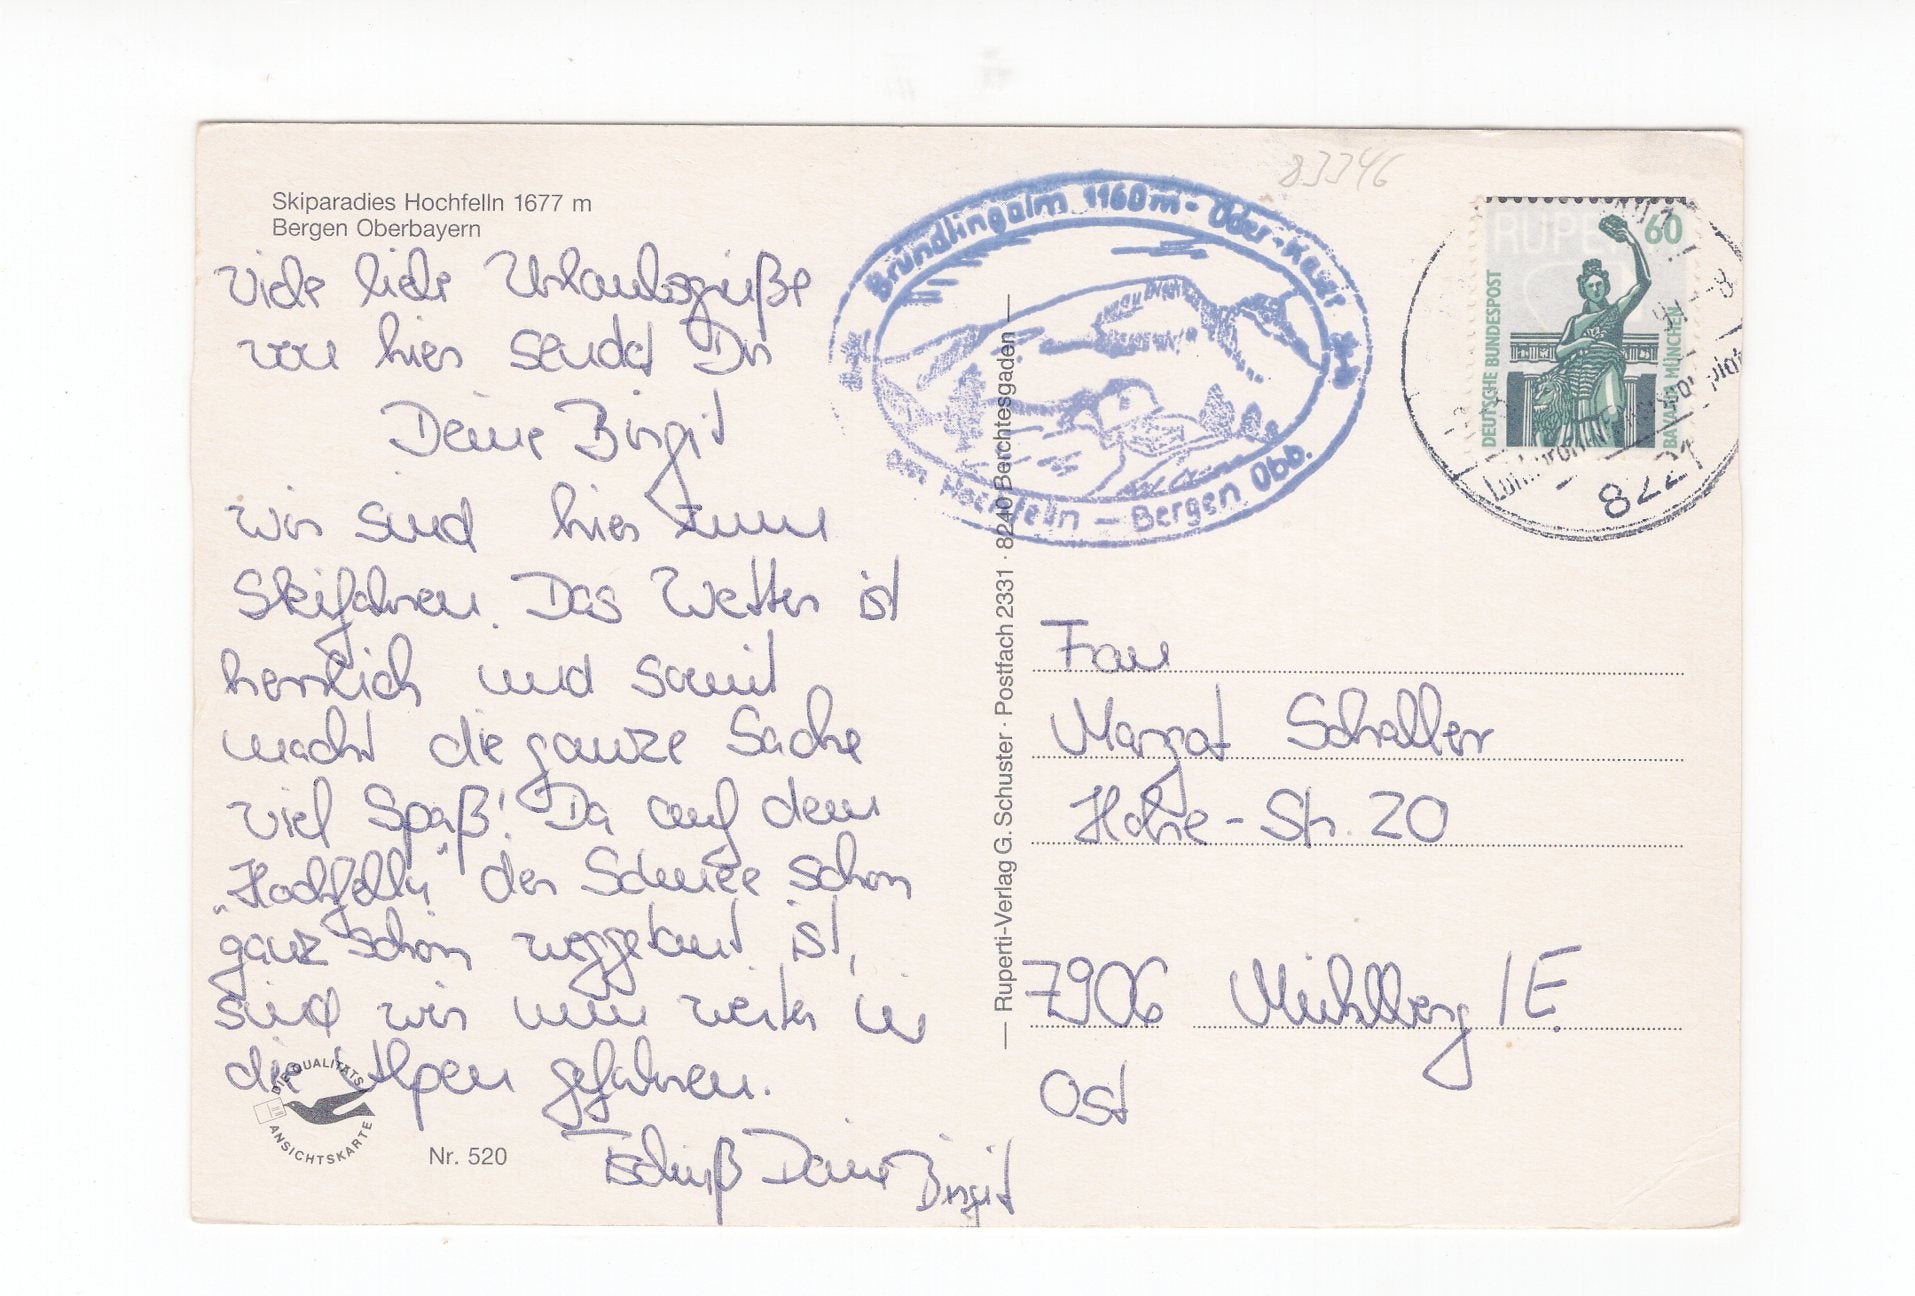 Skiparadies Hochfelln 1677 m
Bergen Oberbayern
Viele liebe Urlaubsgrüße
von hier sendet Dir
Deine Birgit
Wir sind hier zum
Skifahren. Das Wetter ist
herrlich und somit
macht die ganze Sache
viel Spaß! Da auf dem
„Hochfelln“ der Schnee schon
ganz schön weggetaut ist,
sind wir nun weiter in
die Alpen gefahren.
Tschüß Deine Birgit
DIE QUALITÄTS
ANSICHTSKARTE
Nr. 520
— Ruperti-Verlag G. Schuster · Postfach 2331 · 8240 Berchtesgaden —
Bründlingalm 1160m - Ober-Kaser
am Hochfelln — Bergen Obb.
83346
RUPE
60
DEUTSCHE BUNDESPOST
BAVARIA MÜNCHEN
8221
Frau
Margot Schaller
Hohe-Str. 20
7906 Mühlberg / E.
Ost